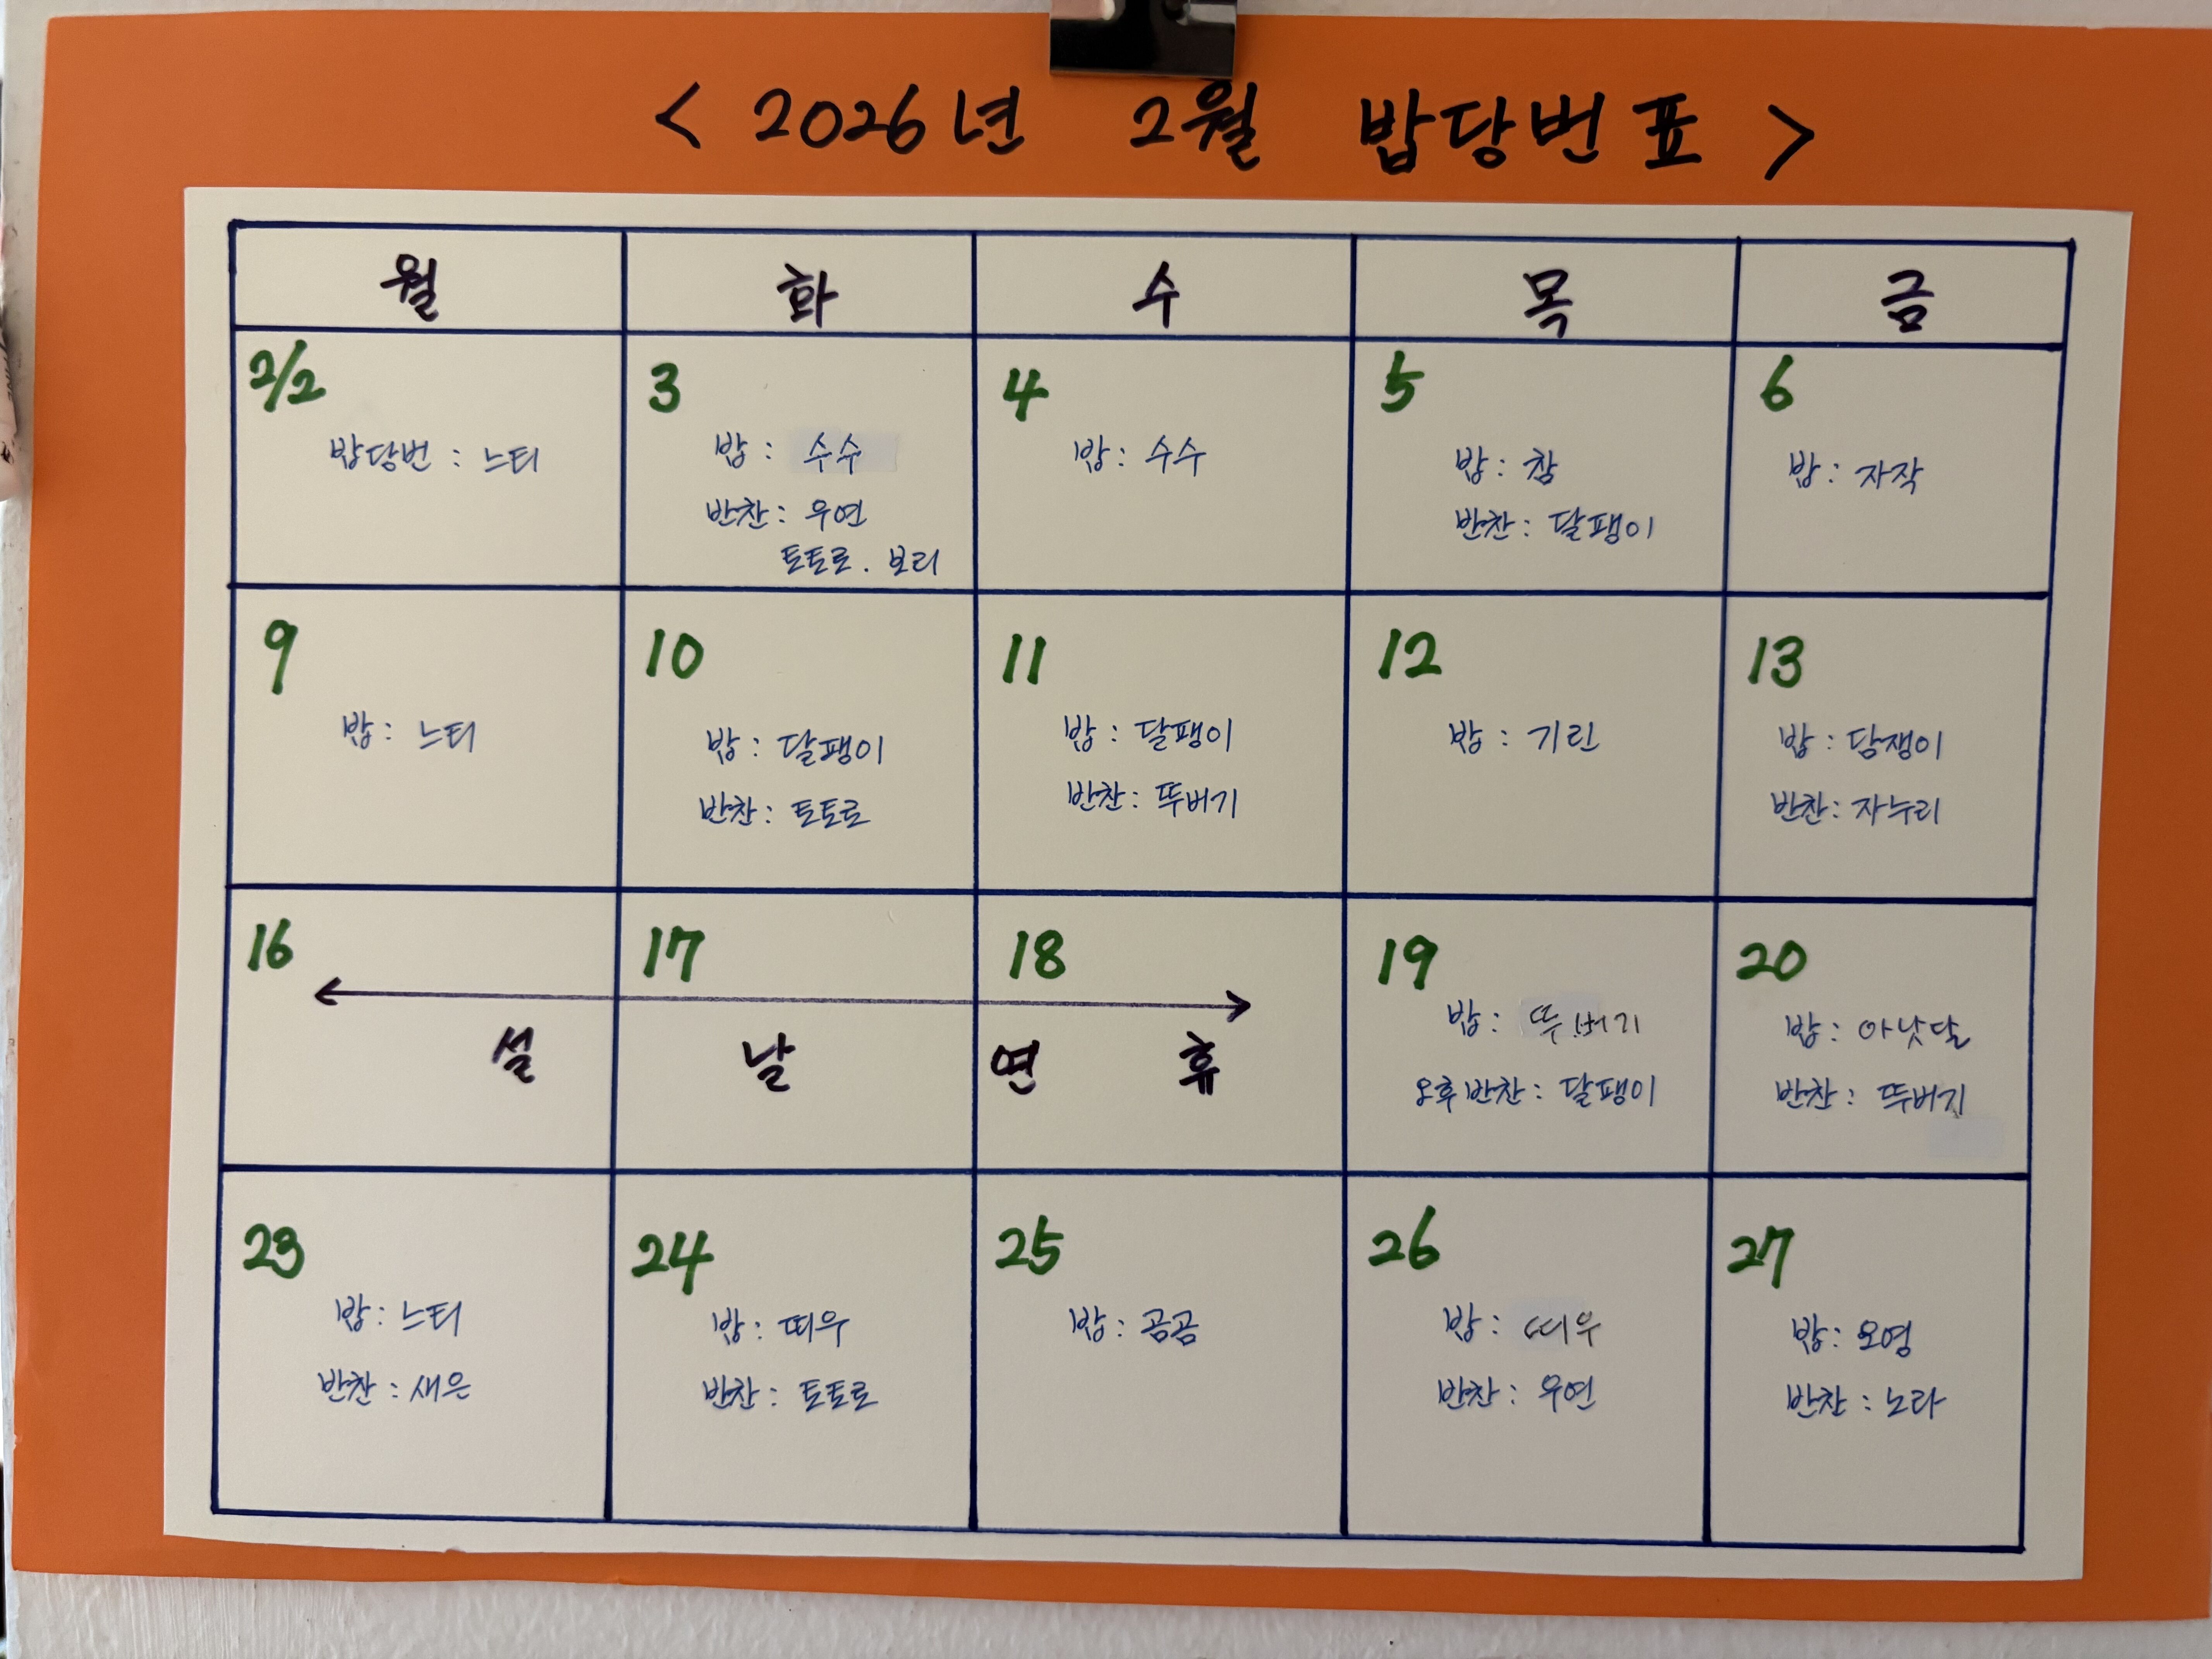 < 2026년 2월 밥당번표 >
월 화 수 목 금
2/2 3 4 5 6
밥당번 : 느티
밥 : 수수
반찬 : 우연
토토로 . 보리
밥 : 수수
밥 : 참
반찬 : 달팽이
밥 : 자작
9 10 11 12 13
밥 : 느티
밥 : 달팽이
반찬 : 토토로
밥 : 달팽이
반찬 : 뚜버기
밥 : 기린
밥 : 담쟁이
반찬 : 자누리
16 17 18 19 20
설 날 연 휴
밥 : 뚜버기
오후반찬 : 달팽이
밥 : 아낫달
반찬 : 뚜버기
23 24 25 26 27
밥 : 느티
반찬 : 새은
밥 : 띠우
반찬 : 토토로
밥 : 곰곰
밥 : 띠우
반찬 : 우연
밥 : 오영
반찬 : 노라